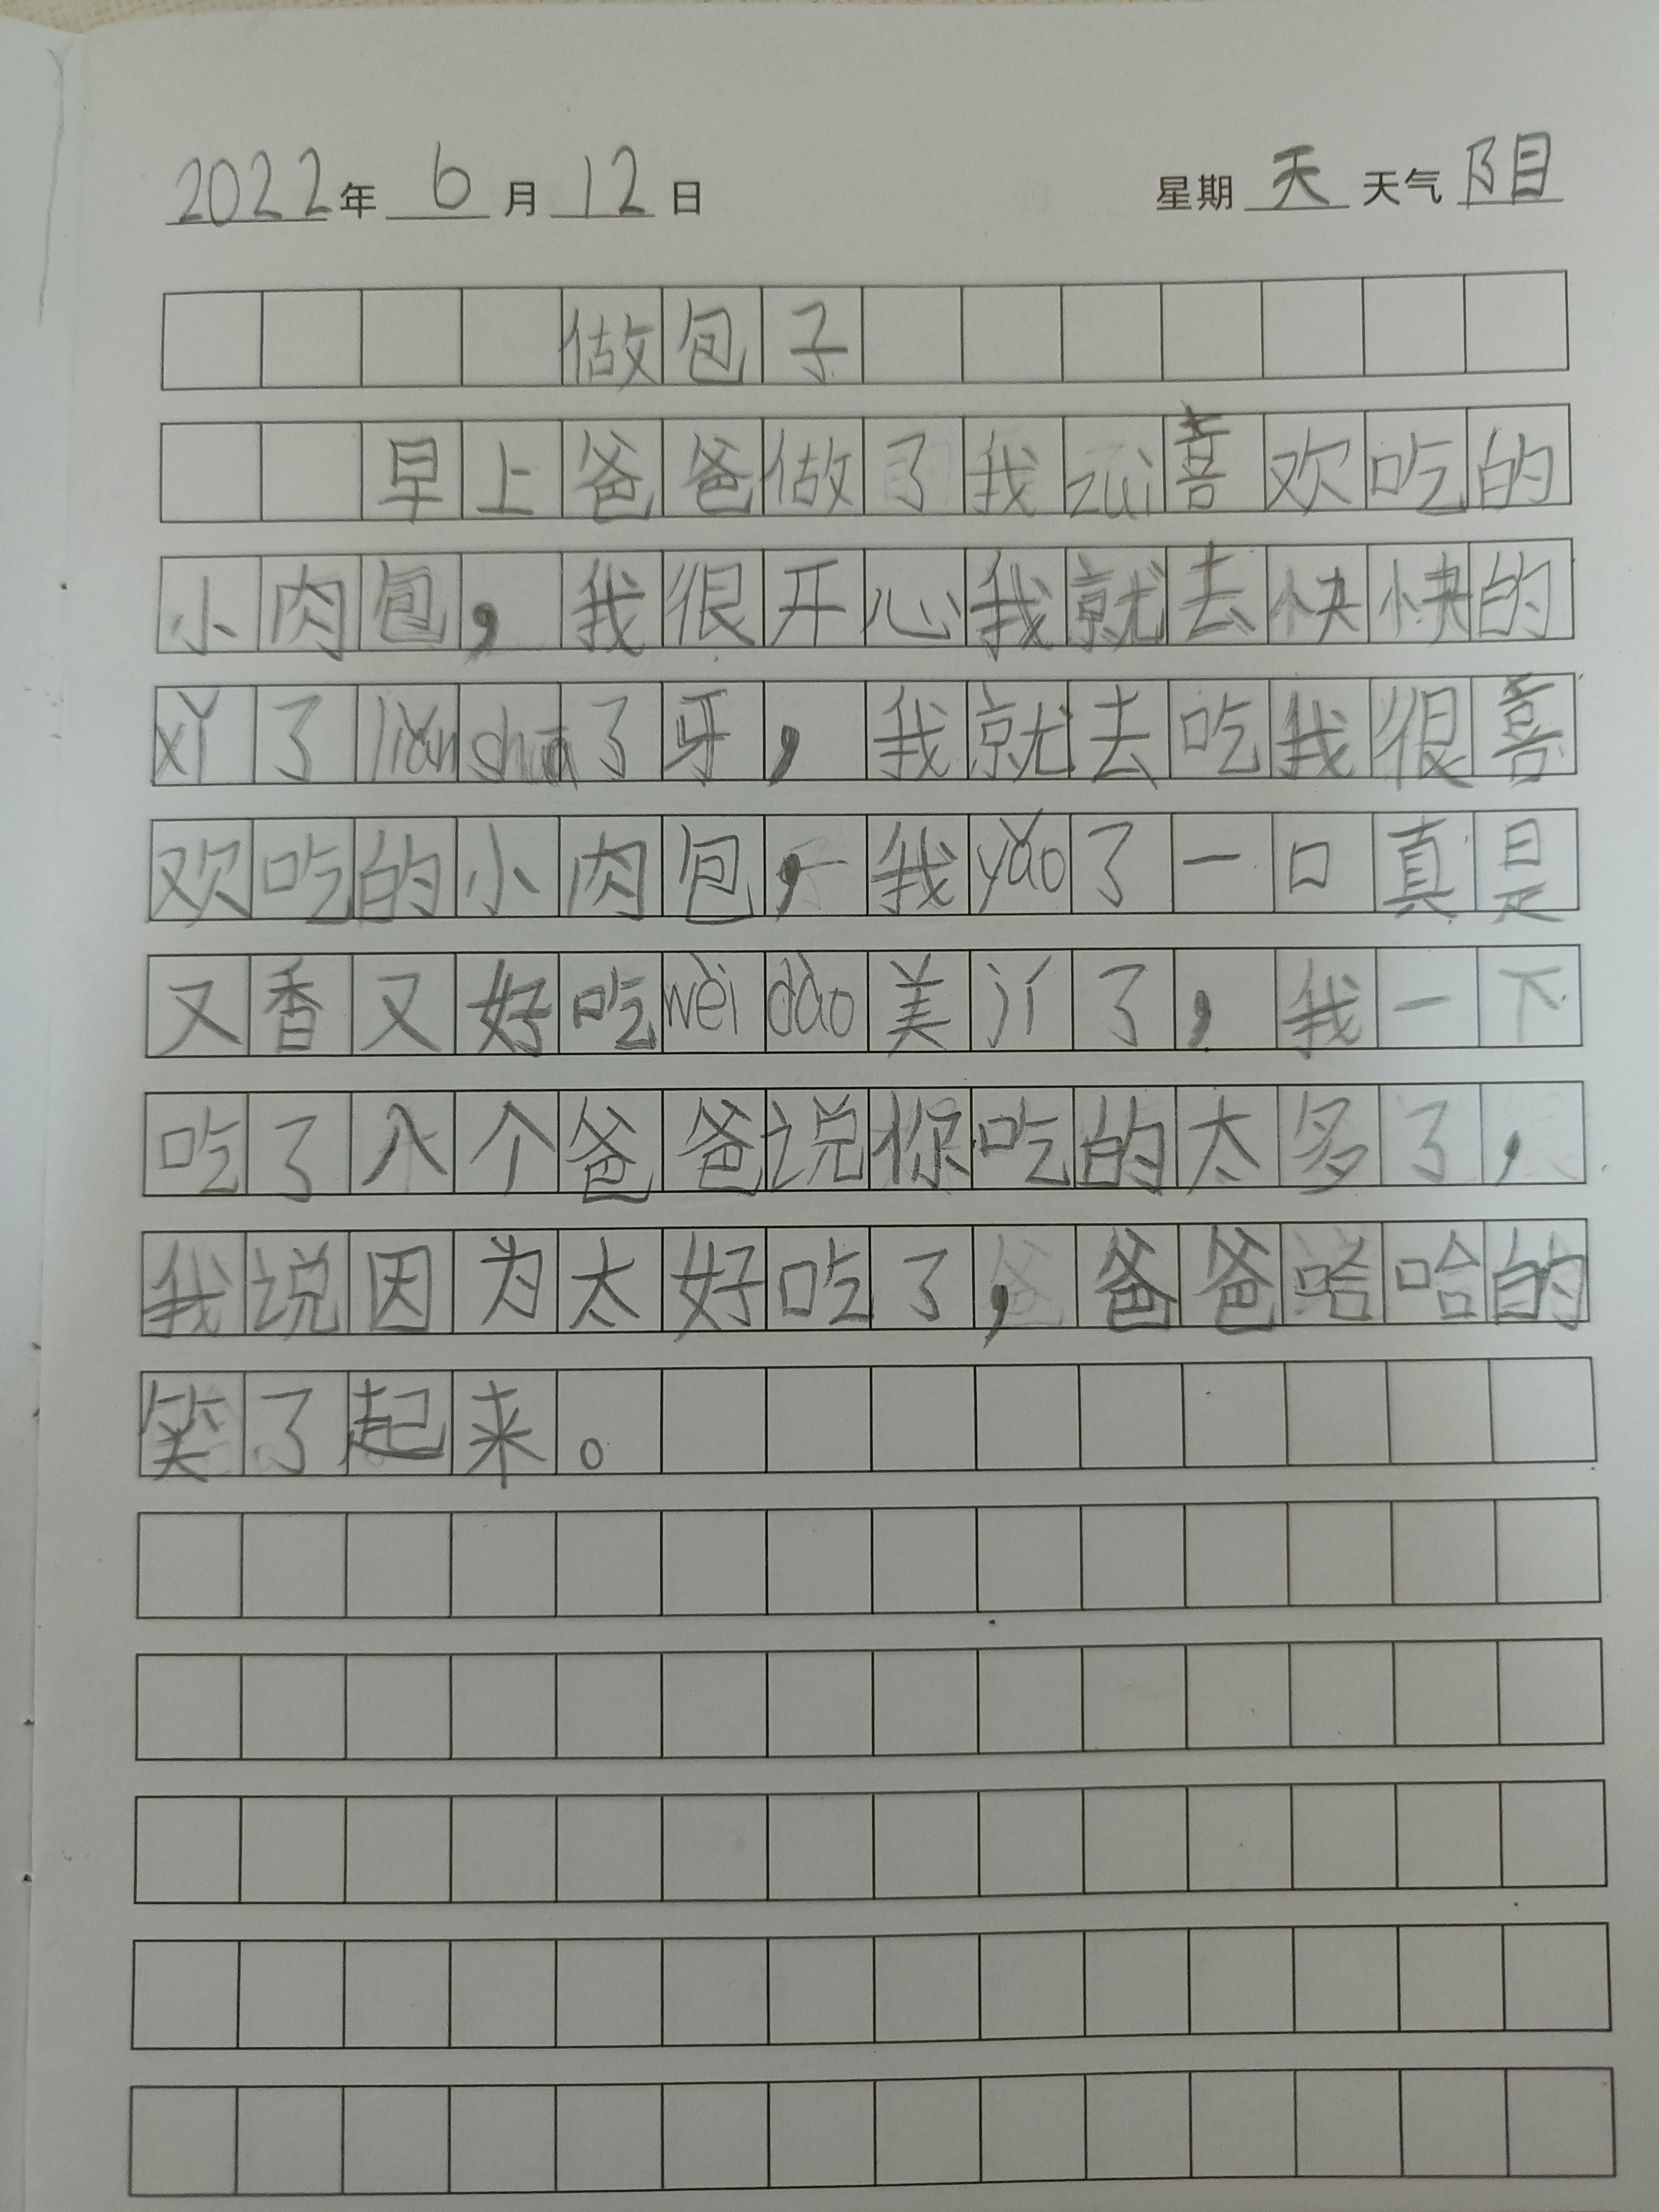 2022年 6 月 12 日 星期 天 天气 阴
做包子
早上爸爸做了我zuì喜欢吃的
小肉包，我很开心我就去快快的
xǐ了liǎn shuā了牙，我就去吃我很喜
欢吃的小肉包，我yǎo了一口真是
又香又好吃wèi dào美jí了，我一下
吃了八个爸爸说你吃的太多了，
我说因为太好吃了，爸爸哈哈的
笑了起来。